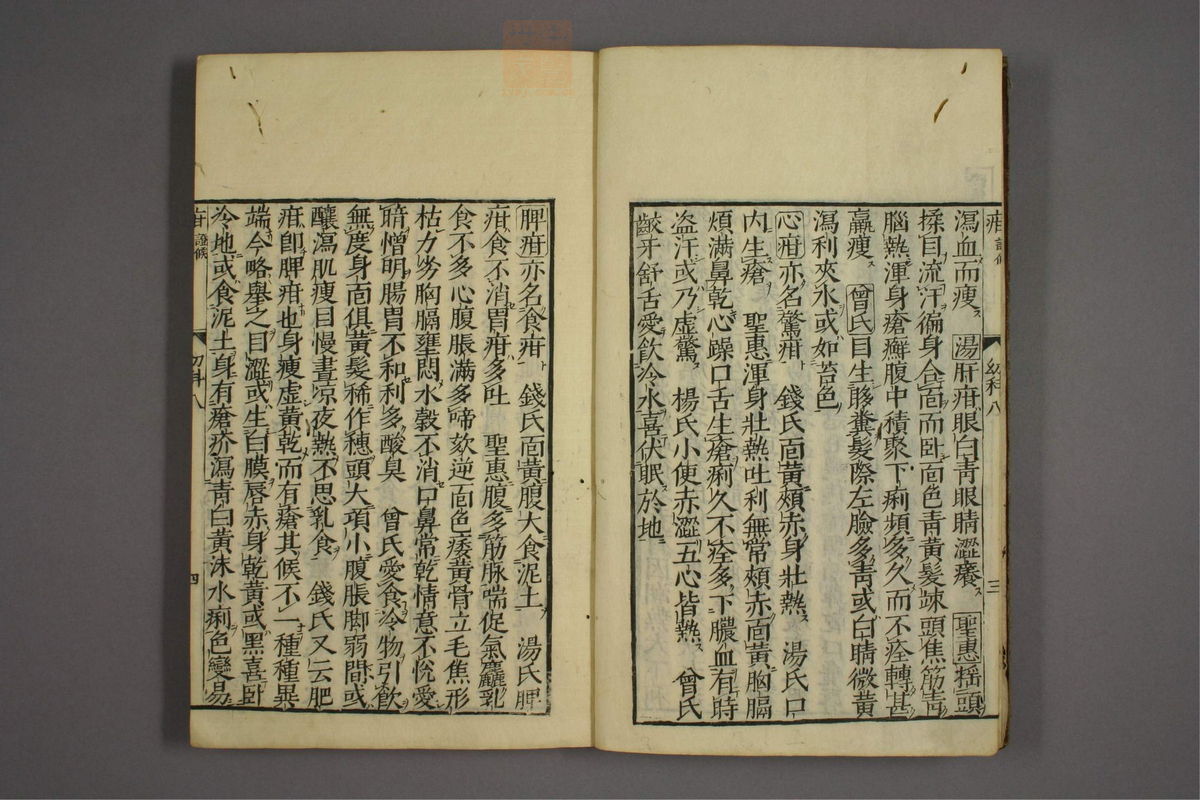 疳 證候 幼科八 三
瀉血而瘦 湯肝疳眼白靑眼睛澀癢 聖惠搖頭
揉目流汗徧身合面而卧面色靑黃髮竦頭焦筋靑
腦熱渾身瘡癬腹中積聚下痢頻多久而不痊轉甚
羸瘦 曾氏目生眵糞髮際左臉多靑或白睛微黃
瀉利夾水或如苔色
心疳亦名驚疳 錢氏面黃頰赤身壯熱 湯氏口
內生瘡 聖惠渾身壯熱吐利無常頰赤面黃胸膈
煩滿鼻乾心躁口舌生瘡痢久不痊多下膿血有時
盜汗或乃虛驚 楊氏小便赤澀五心皆熱 曾氏
齩牙舒舌愛飮冷水喜伏眠於地
脾疳亦名食疳 錢氏面黃腹大食泥土 湯氏脾
疳食不消胃疳多吐 聖惠腹多筋脉喘促氣麤乳
食不多心腹脹滿多啼欬逆面色痿黃骨立毛焦形
枯力劣胸膈壅悶水穀不消口鼻常乾情意不悅愛
暗憎明腸胃不和利多酸臭 曾氏愛食冷物引飮
無度身面俱黃髮稀作穗頭大項小腹脹脚弱間或
釀瀉肌瘦目慢晝凉夜熱不思乳食 錢氏又云肥
疳卽脾疳也身瘦虛黃乾而有瘡其候不一種種異
端今略擧之目澀或生白膜唇赤身乾黃或黑喜卧
冷地或食泥土身有瘡疥瀉靑白黃沫水痢色變易
疳 證候 幼科八 四